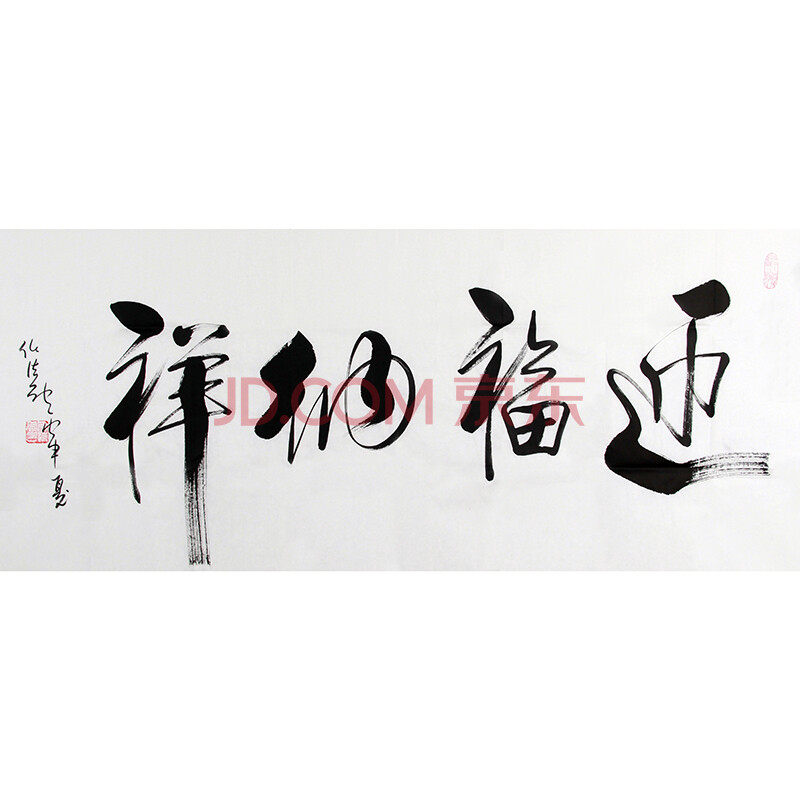 迎福纳祥
JD.COM 京东